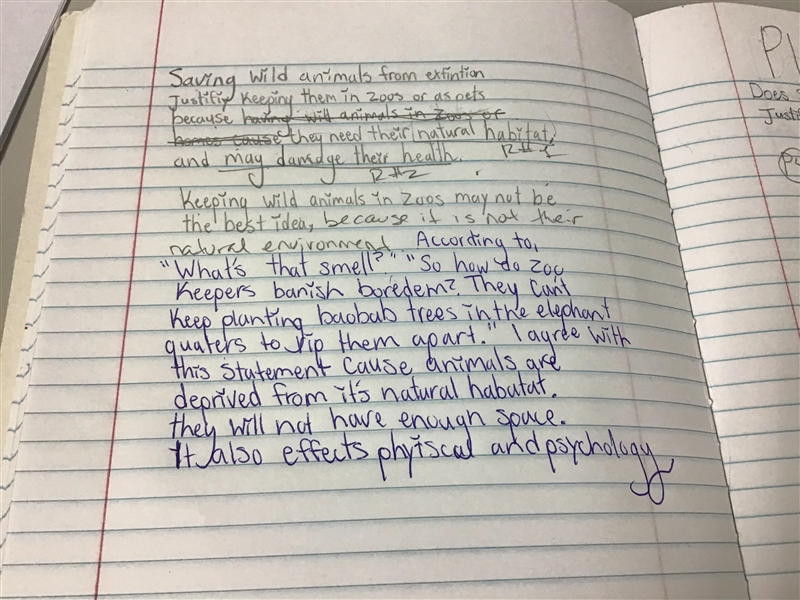 Saving wild animals from extintion
Justifiy Keeping them in zoos or as pets
because having will animals in zoos or
homes cause they need their natural habitat,
and may damadge their health.
R#1
R#2
Keeping wild animals in zoos may not be
the best idea, because it is not their
natural environment. According to,
"What's that smell?" "So how do zoo
Keepers banish boredem? They cant
Keep planting baobab trees in the elephant
quaters to rip them apart." I agree with
this statement cause animals are
deprived from it's natural habatat.
they will not have enough space.
It also effects phyiscal and psychology
Does
Justif